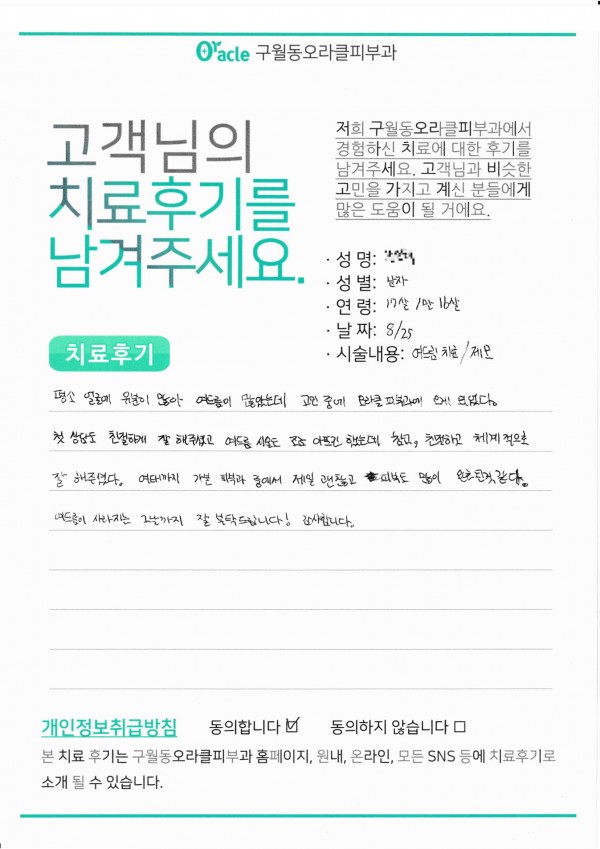 Oracle 구월동오라클피부과
고객님의
치료후기를
남겨주세요.
저희 구월동오라클피부과에서
경험하신 치료에 대한 후기를
남겨주세요. 고객님과 비슷한
고민을 가지고 계신 분들에게
많은 도움이 될 거에요.
· 성 명:
· 성 별: 남자
· 연 령: 17살 / 만 16살
· 날 짜: 8/25
· 시술내용: 여드름 치료 / 제모
치료후기
평소 얼굴에 유분이 많아 여드름이 많았는데 고민 중에 오라클 피부과에 오게 되었다.
첫 상담도 친절하게 잘 해주셨고 여드름 시술도 조금 아프긴 했는데 참고, 친절하고 체계적으로
잘 해주셨다. 여태까지 가본 피부과 중에서 제일 괜찮고 피부도 많이 완화된것 같다.
여드름이 사라지는 그날까지 잘 부탁드립니다! 감사합니다.
개인정보취급방침 동의합니다 ☑ 동의하지 않습니다 ☐
본 치료 후기는 구월동오라클피부과 홈페이지, 원내, 온라인, 모든 SNS 등에 치료후기로
소개 될 수 있습니다.